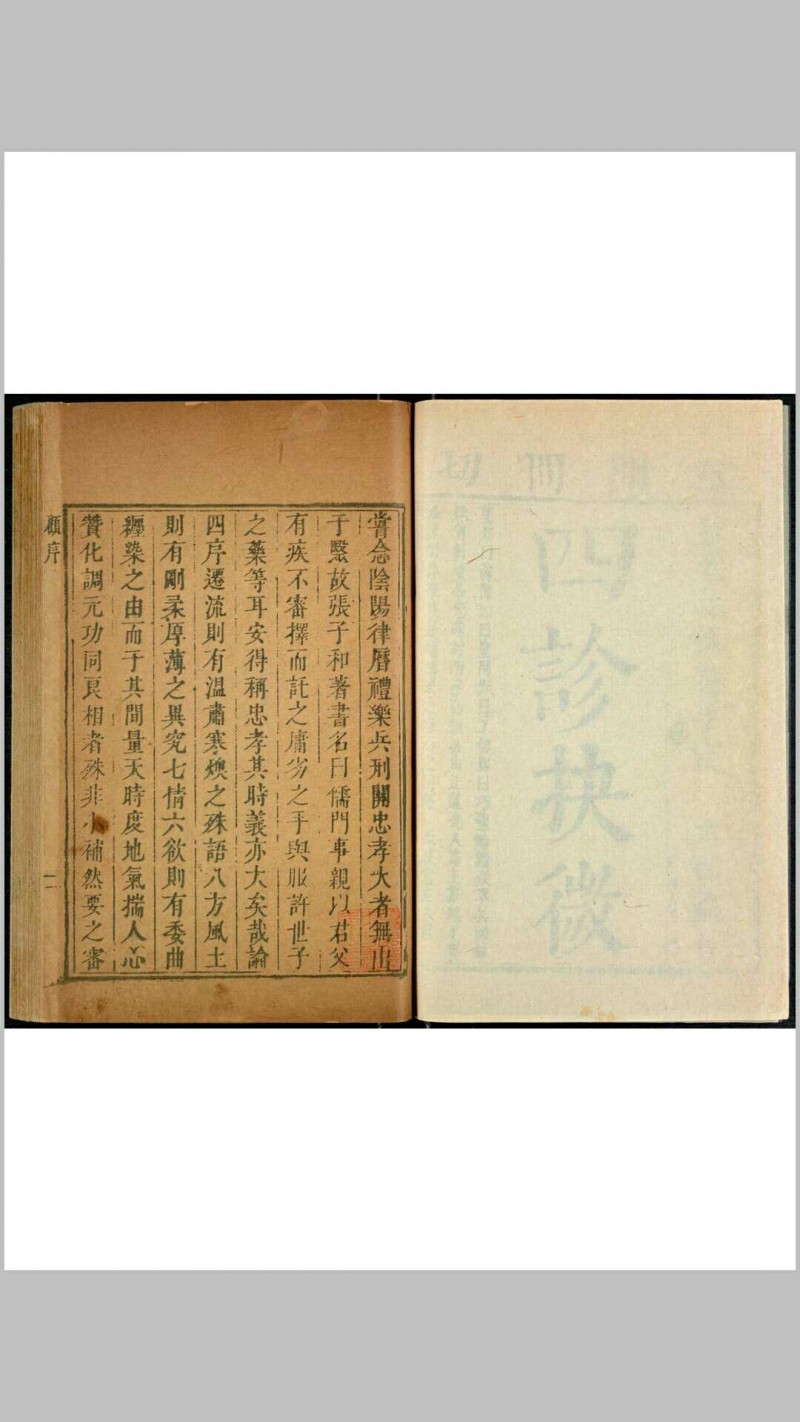 四診抉微
嘗念陰陽律曆禮樂兵刑關忠孝大者無出
于毉故張子和著書名曰儒門事親以君父
有疾不審擇而託之庸劣之手與服許世子
之藥等耳安得稱忠孝其時義亦大矣哉論
四序遷流則有溫肅寒燠之殊語八方風土
則有剛柔厚薄之異究七情六欲則有委曲
纏染之由而于其間量天時度地氣揣人心
贊化調元功同良相者殊非小補然要之審
顧序
一